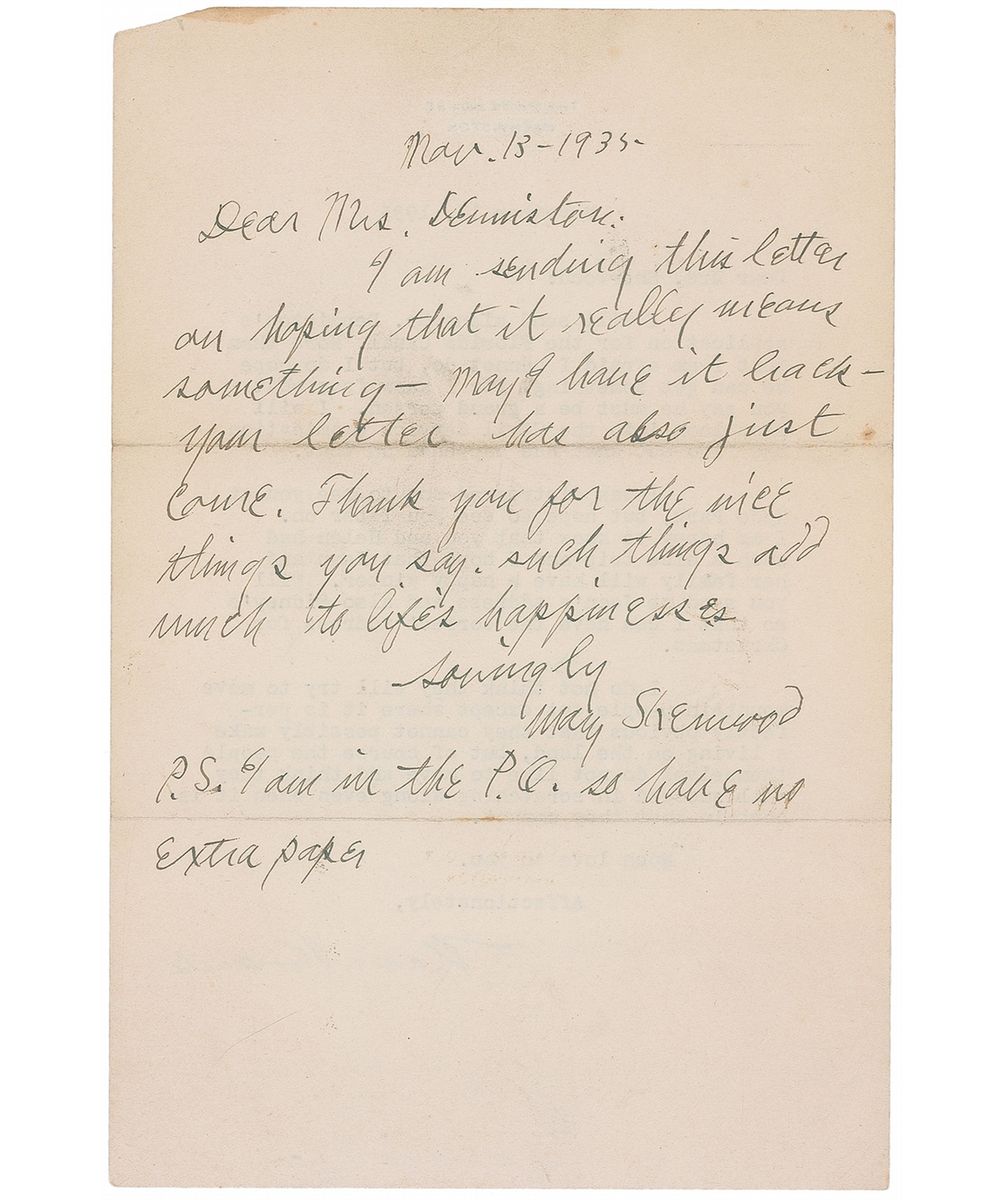 Nov. 13 - 1935 -
Dear Mrs. Denniston.
I am sending this letter
on hoping that it really means
something — May I have it back —
your letter has also just
come. Thank you for the nice
things you say. such things add
much to life's happinesses
Lovingly
Mary Sherwood
P.S. I am in the P.O. so have no
extra paper